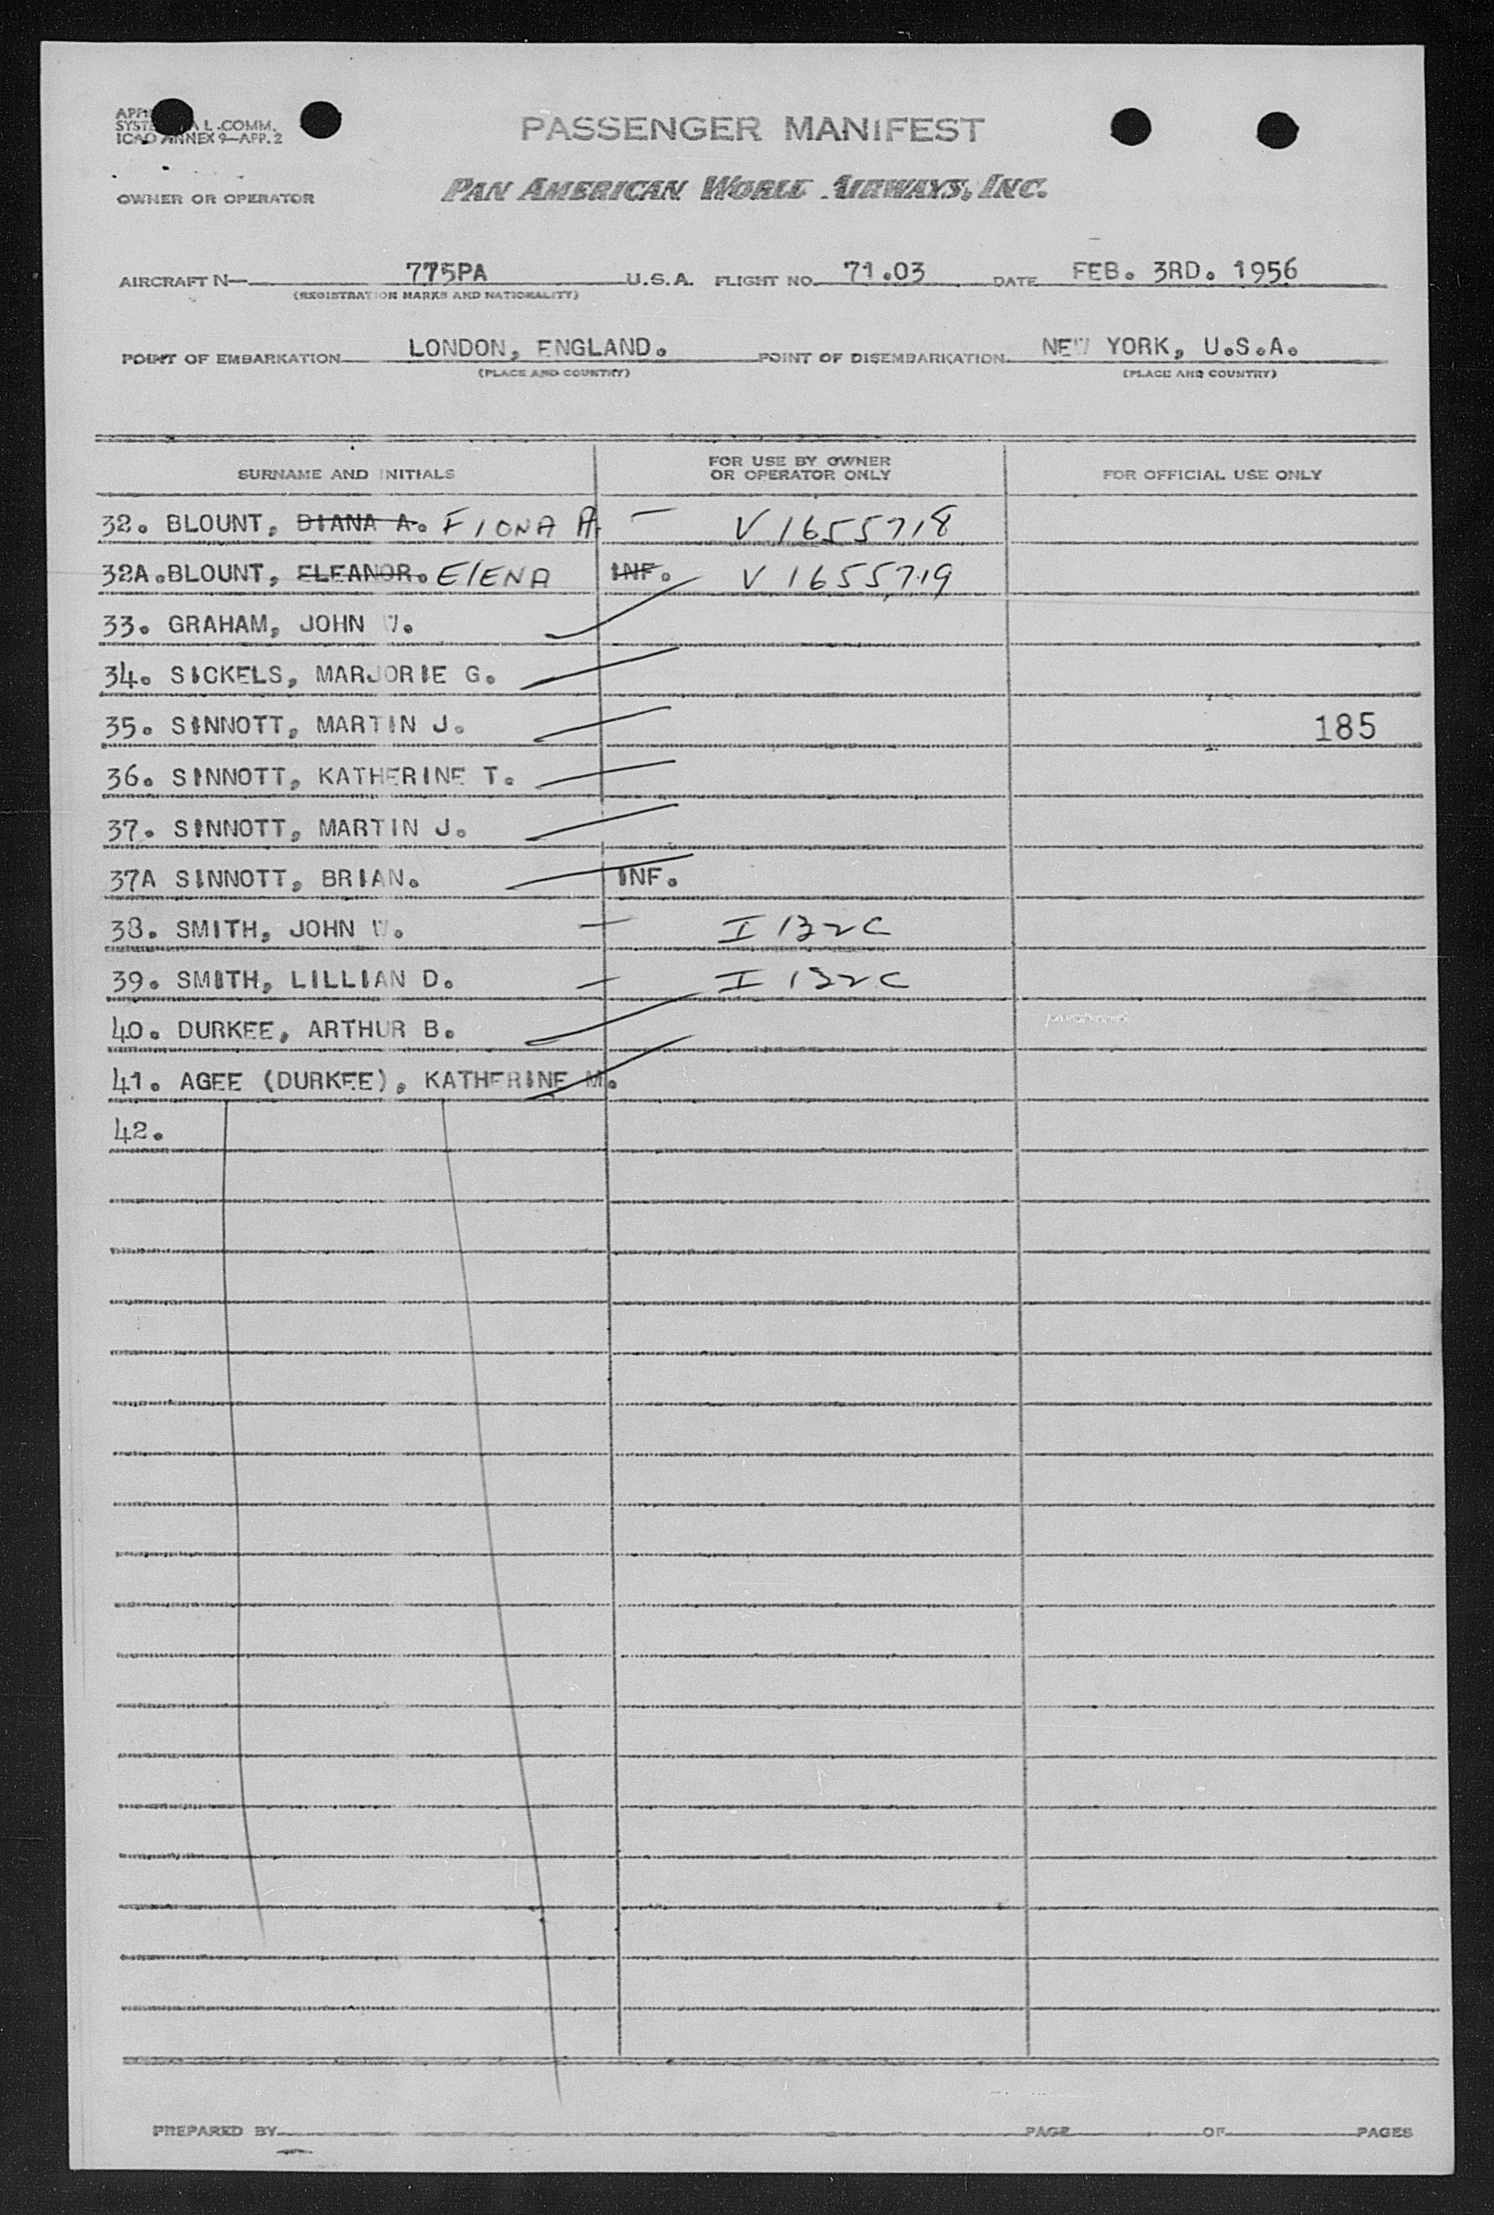 SYSTE AL.COMM.
ICAO ANNEX 9—APP. 2
PASSENGER MANIFEST
OWNER OR OPERATOR PAN AMERICAN WORLD AIRWAYS, INC.
AIRCRAFT N— 775PA U.S.A. FLIGHT NO. 71.03 DATE FEB. 3RD. 1956
(REGISTRATION MARKS AND NATIONALITY)
POINT OF EMBARKATION LONDON, ENGLAND. POINT OF DISEMBARKATION NEW YORK, U.S.A.
(PLACE AND COUNTRY) (PLACE AND COUNTRY)
SURNAME AND INITIALS FOR USE BY OWNER OR OPERATOR ONLY FOR OFFICIAL USE ONLY
32. BLOUNT, DIANA A. FIONA A. — V 1655718
32A. BLOUNT, ELEANOR. ElENA INF. V 1655719
33. GRAHAM, JOHN W.
34. SICKELS, MARJORIE G.
35. SINNOTT, MARTIN J. 185
36. SINNOTT, KATHERINE T.
37. SINNOTT, MARTIN J.
37A SINNOTT, BRIAN. INF.
38. SMITH, JOHN W. — I 132C
39. SMITH, LILLIAN D. — I 132C
40. DURKEE, ARTHUR B.
41. AGEE (DURKEE), KATHERINE M.
42.
PREPARED BY PAGE OF PAGES